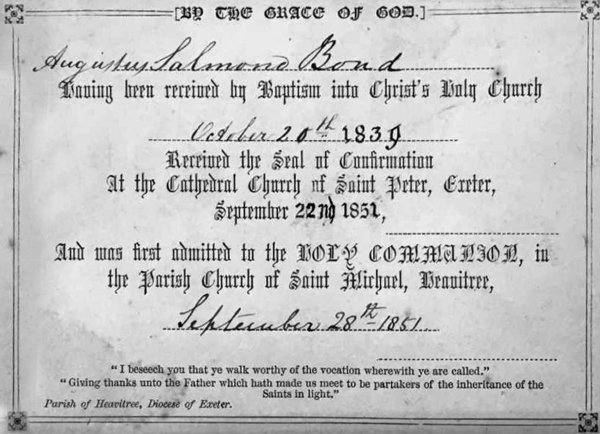 [BY THE GRACE OF GOD.]
Augustus Salmond Bond
Having been received by Baptism into Christ's Holy Church
October 20th 1839
Received the Seal of Confirmation
At the Cathedral Church of Saint Peter, Exeter,
September 22nd 1851,
And was first admitted to the HOLY COMMUNION, in
the Parish Church of Saint Michael, Heavitree,
September 28th 1851
"I beseech you that ye walk worthy of the vocation wherewith ye are called."
"Giving thanks unto the Father which hath made us meet to be partakers of the inheritance of the
Saints in light."
Parish of Heavitree, Diocese of Exeter.